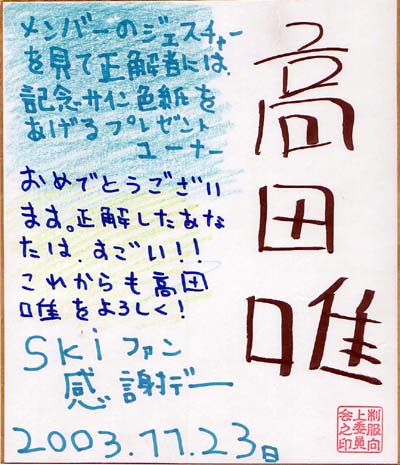 高田唯
メンバーのジェスチャー
を見て正解者には、
記念サイン色紙を
あげるプレゼント
コーナー
おめでとうござい
ます。正解したあな
たは、すごい!!
これからも高田
唯をよろしく!
SKiファン
感謝デー
2003.11.23日
制服向
上委員
会之印